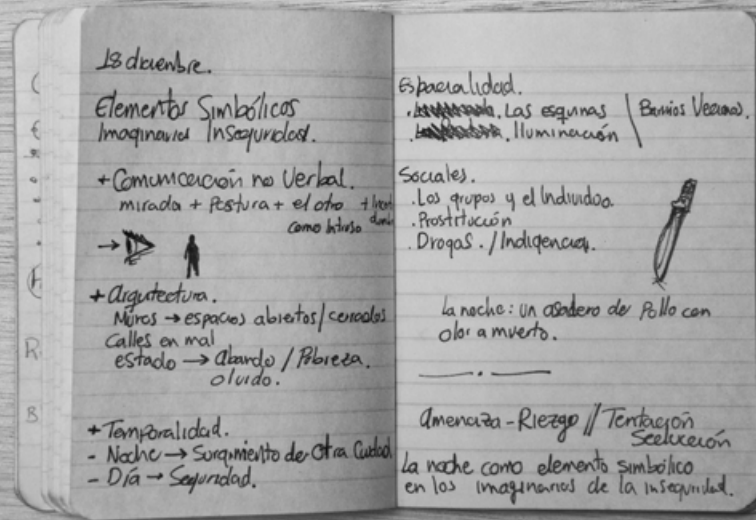 18 diciembre.
Elementos Simbólicos
Imaginarios Inseguridad.
+ Comunicación no Verbal.
mirada + Postura + el otro +
como Intruso
+ Arquitectura.
Muros → espacios abiertos/cerrados
Calles en mal
estado → abando / Pobreza.
olvido.
+ Temporalidad.
- Noche → Surgimiento de Otra Ciudad
- Día → Seguridad.
Espacialidad.
. Las esquinas / Barrios Vecinos.
. Iluminación
Sociales.
. Los grupos y el Individuo.
. Prostitución
. Drogas. / Indigencia.
La noche: un asadero de Pollo con
olor a muerto.
Amenaza - Riezgo // Tentación
Seducción
La noche como elemento simbólico
en los imaginarios de la inseguridad.